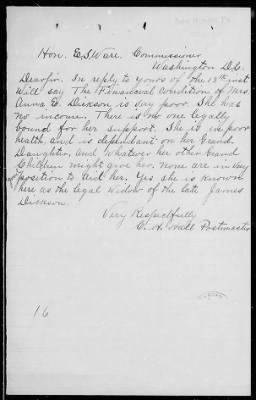 Hon. E. S. Ware. Commissioner
Washington D.C.
Dear sir. In reply to yours of the 13th inst
Will say The Financial Condition of Mrs.
Anna E. Dickson is very poor. She has
no income. There is no one legally
bound for her support. She is in poor
health, and is dependant on her Grand
Daughter, and whatever her other Grand
Children might give her. None are in very
position to Aid her. Yes she is known
here as the legal widow of the late James
Dickson.
Very Respectfully
Postmaster
16